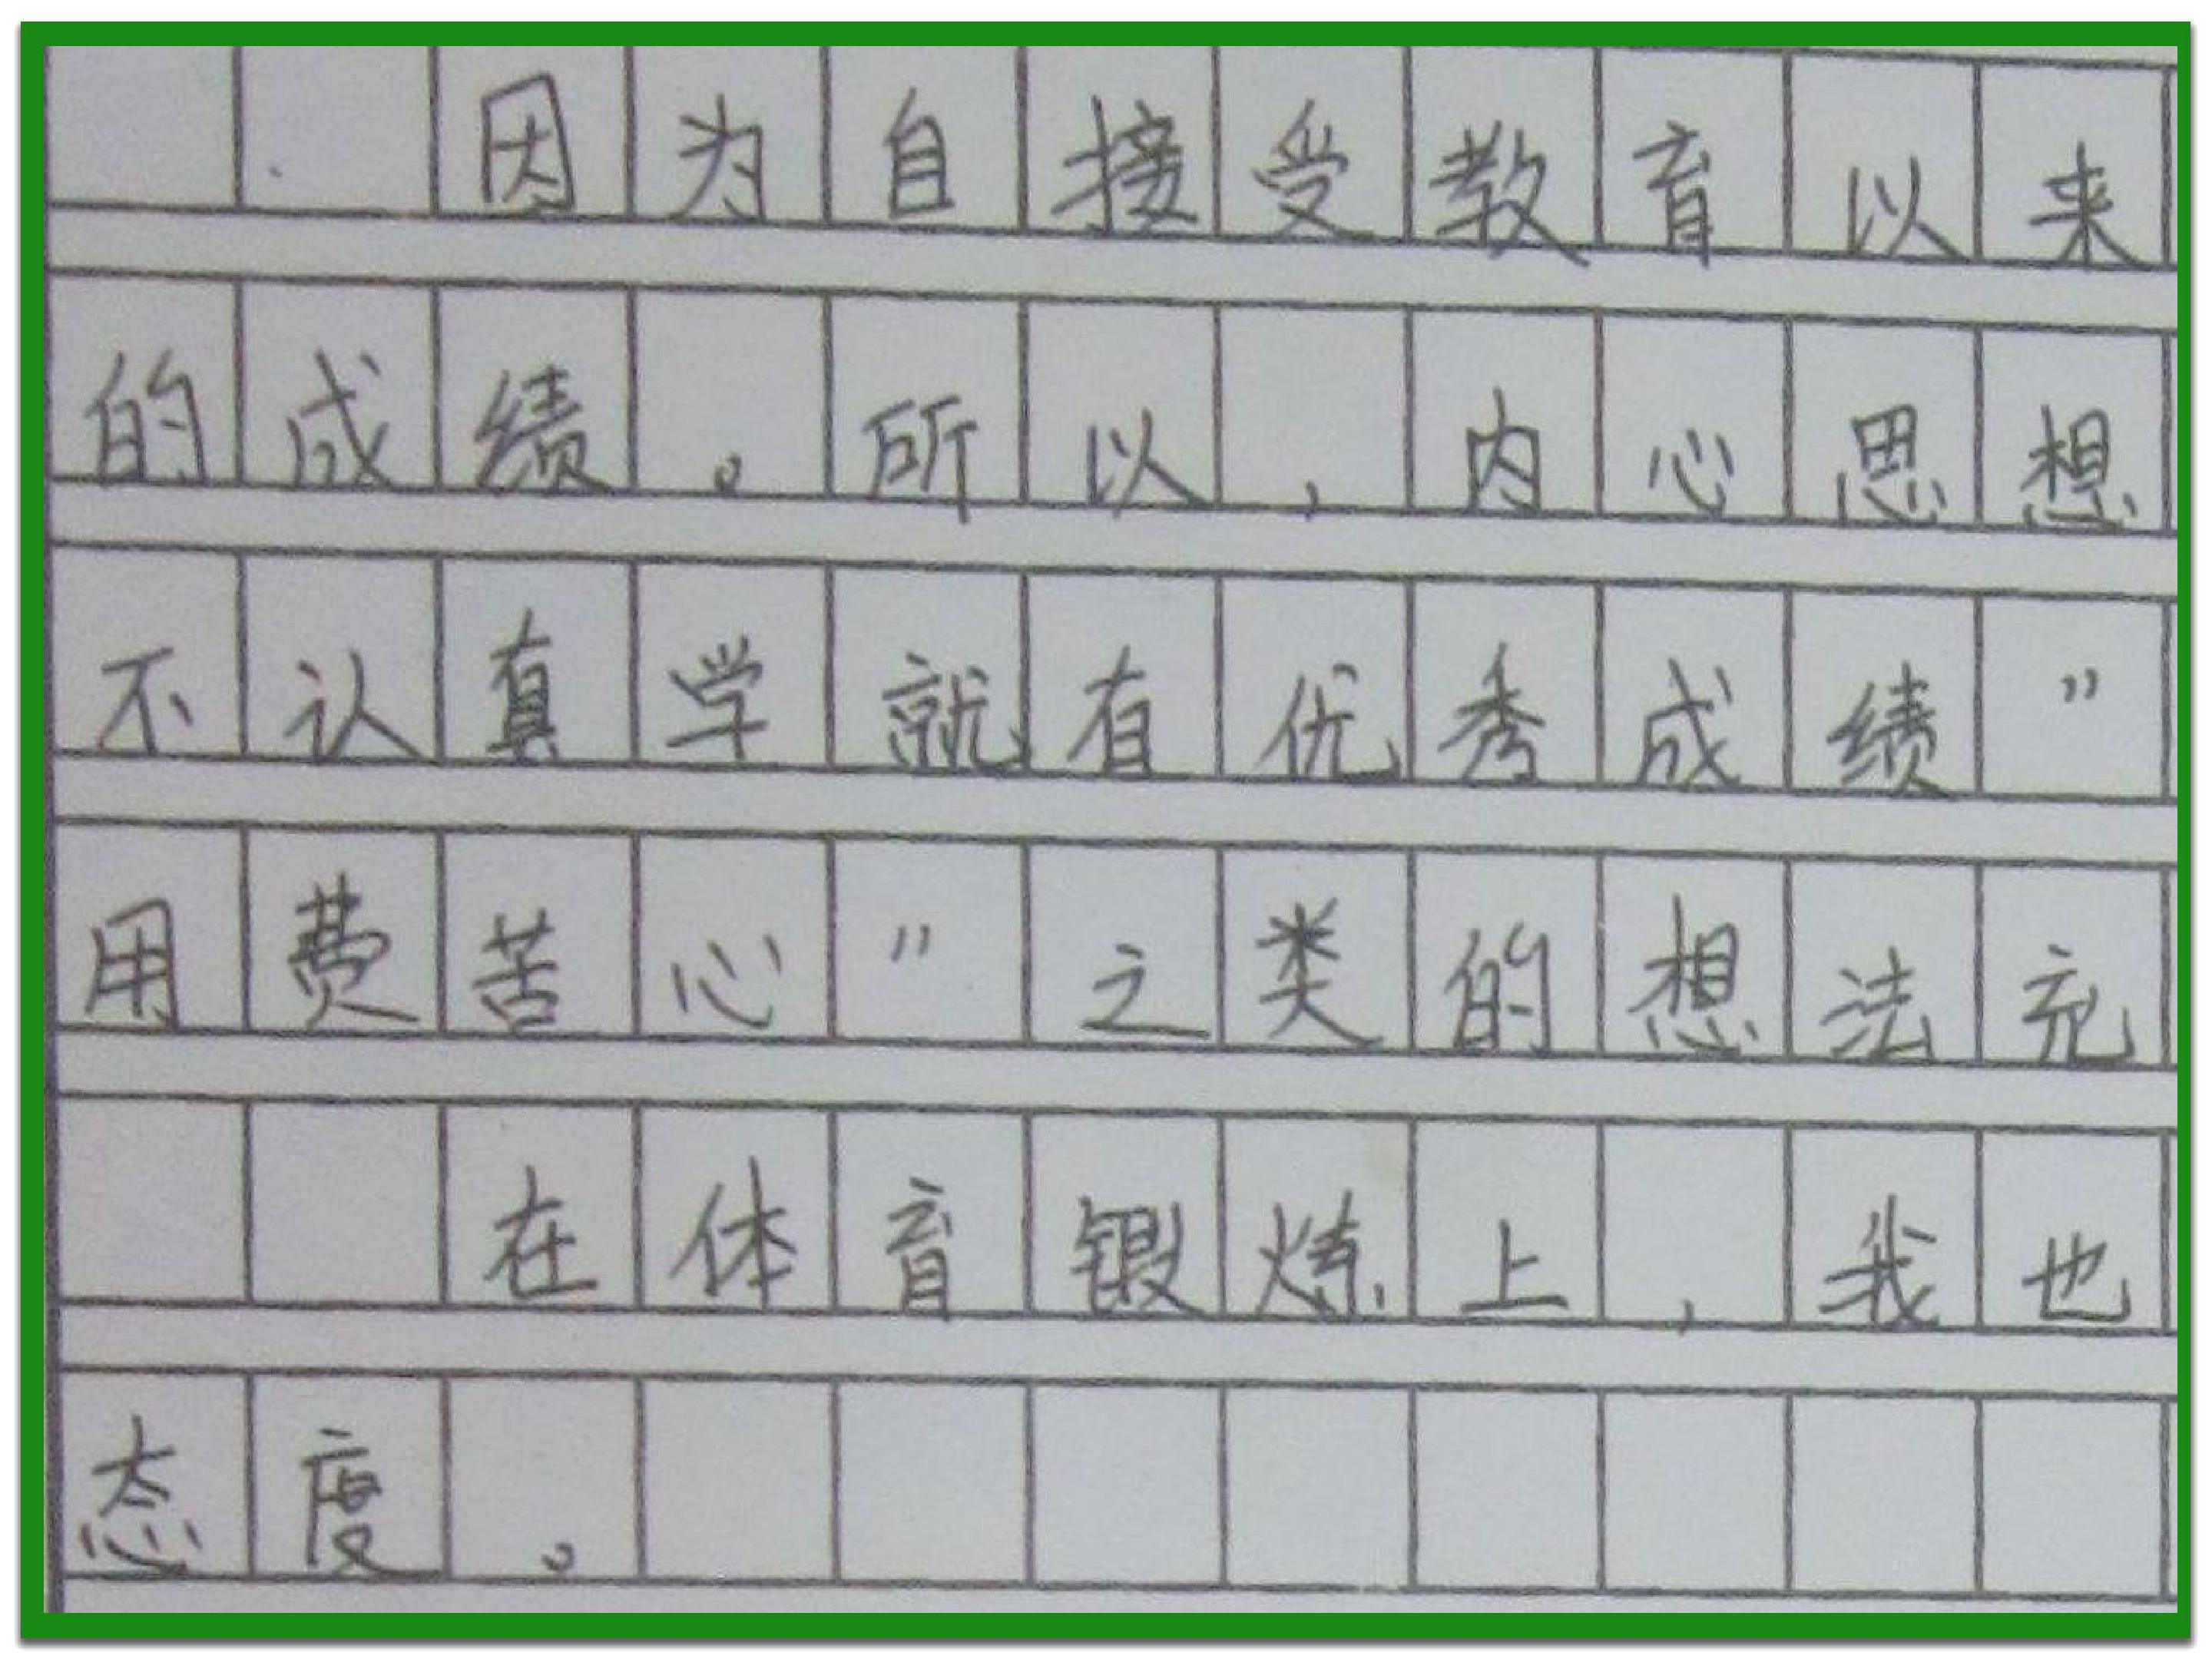 因为自接受教育以来
的成绩。所以,内心思想
不认真学就有优秀成绩”
用费苦心”之类的想法充
在体育锻炼上,我也
态度。